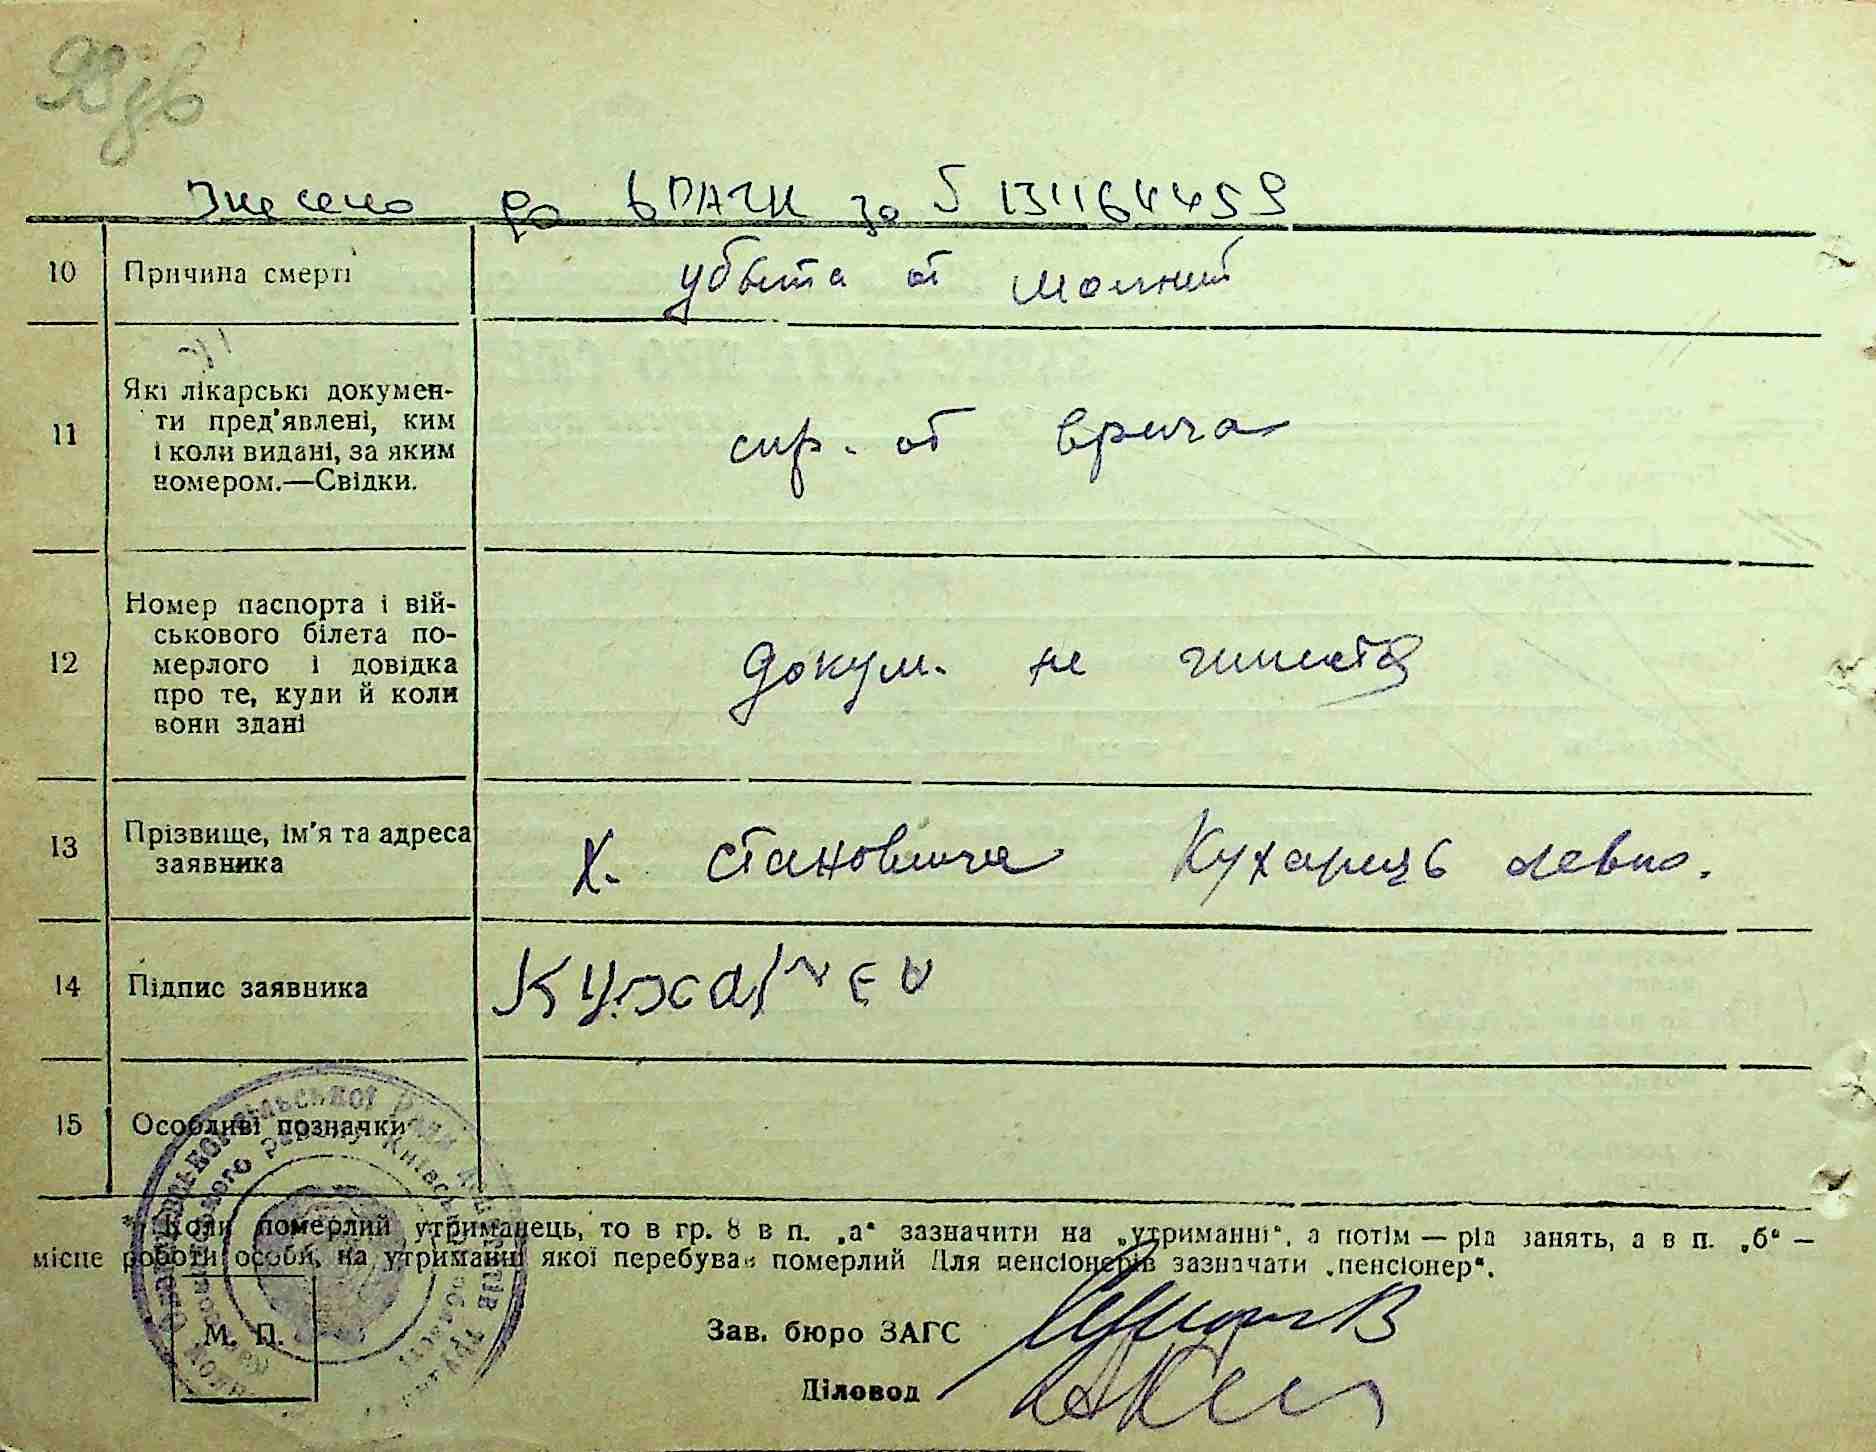 Внесено до ДРАЦС за № 13116445 9
10 Причина смерті убита от молнии
11 Які лікарські докумен-
ти пред'явлені, ким
і коли видані, за яким
номером.—Свідки.
спр. от врача
12 Номер паспорта і вій-
ськового білета по-
мерлого і довідка
про те, куди й коли
вони здані
докум. не имеется
13 Прізвище, ім'я та адреса
заявника
х. Становище Кухарець
14 Підпис заявника Кухарец
15 Особливі позначки
*) Коли померлий утриманець, то в гр. 8 в п. „а“ зазначити на „утриманні“, а потім — рід занять, а в п. „б“ —
місце роботи особи, на утриманні якої перебував померлий Для пенсіонерів зазначати „пенсіонер“.
М. П.
Зав. бюро ЗАГС
Діловод